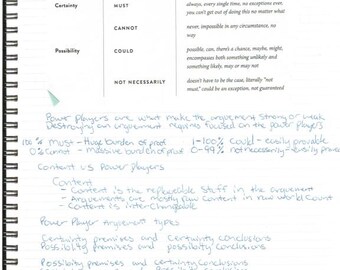 Certainty MUST always, every single time, no exceptions ever, you can't get out of doing this no matter what
CANNOT never, impossible in any circumstance, no way
Possibility COULD possible, can, there's a chance, maybe, might, encompasses both something unlikely and something likely, may or may not
NOT NECESSARILY doesn't have to be the case, literally "not must," could be an exception, not guaranteed
Power players are what make the argument strong or weak
Destroying an argument requires focused on the power players
100% Must - Huge burden of proof 1-100% Could - easily provable
0% Cannot - massive burden of proof 0-99% not necessarily - easily proven
Content vs Power players
Content
- Content is the replaceable stuff in the argument
- Arguments are mostly content in raw word count
- Content is interchangeable
Power Player Argument types
Certainty premises and certainty conclusions
Possibility premises and possibility conclusions
Possibility premises and certainty conclusions